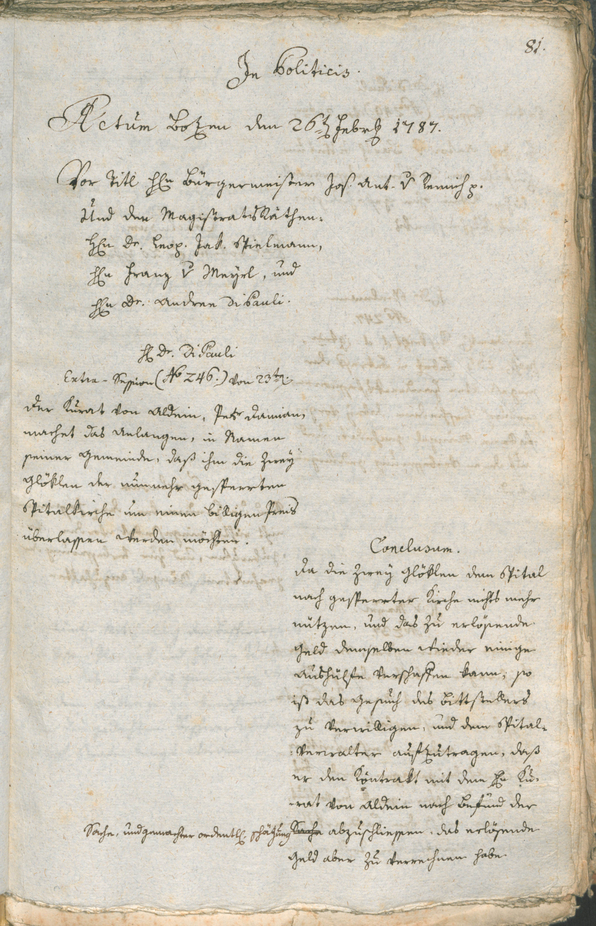 81.
In Politicis.
Actum Botzen den 26t Febr 1787.
Vor Titl Hn Bürgermeister Jos. Ant. v Remich p.
Und den Magistrats Räthen:
Hn Dr. Leop. Jak. Spielmann,
Hn Franz v Mayrl, und
Hn Dr. Andree Di Pauli.
H Dr. Di Pauli
Extra-Session (No 246.) von 23ten
Der Kurat von Aldein, Pet Damian,
machet das Anlangen, in Namen
seiner Gemeinde, daß ihm die zwey
Glöklen der nunmehr gesperrten
Spitalkirche um einen billigen Preis
überlassen werden möchten.
Conclusum.
Da die zwey Glöklen dem Spital
nach gesperrter Kirche nichts mehr
nützen, und das zu erlösende
Geld demselben wieder einige
Aushülfe verschaffen kann; so
ist das Gesuch des Bittstellers
zu verwilligen, und dem Spital-
verwalter aufzutragen, daß
er den Kontrakt mit dem Hn Ku-
rat von Aldein nach Befund der
Sache, und gemachter ordentl. Schätzung abzuschliessen, das erlösende
Geld aber zu verrechnen habe.